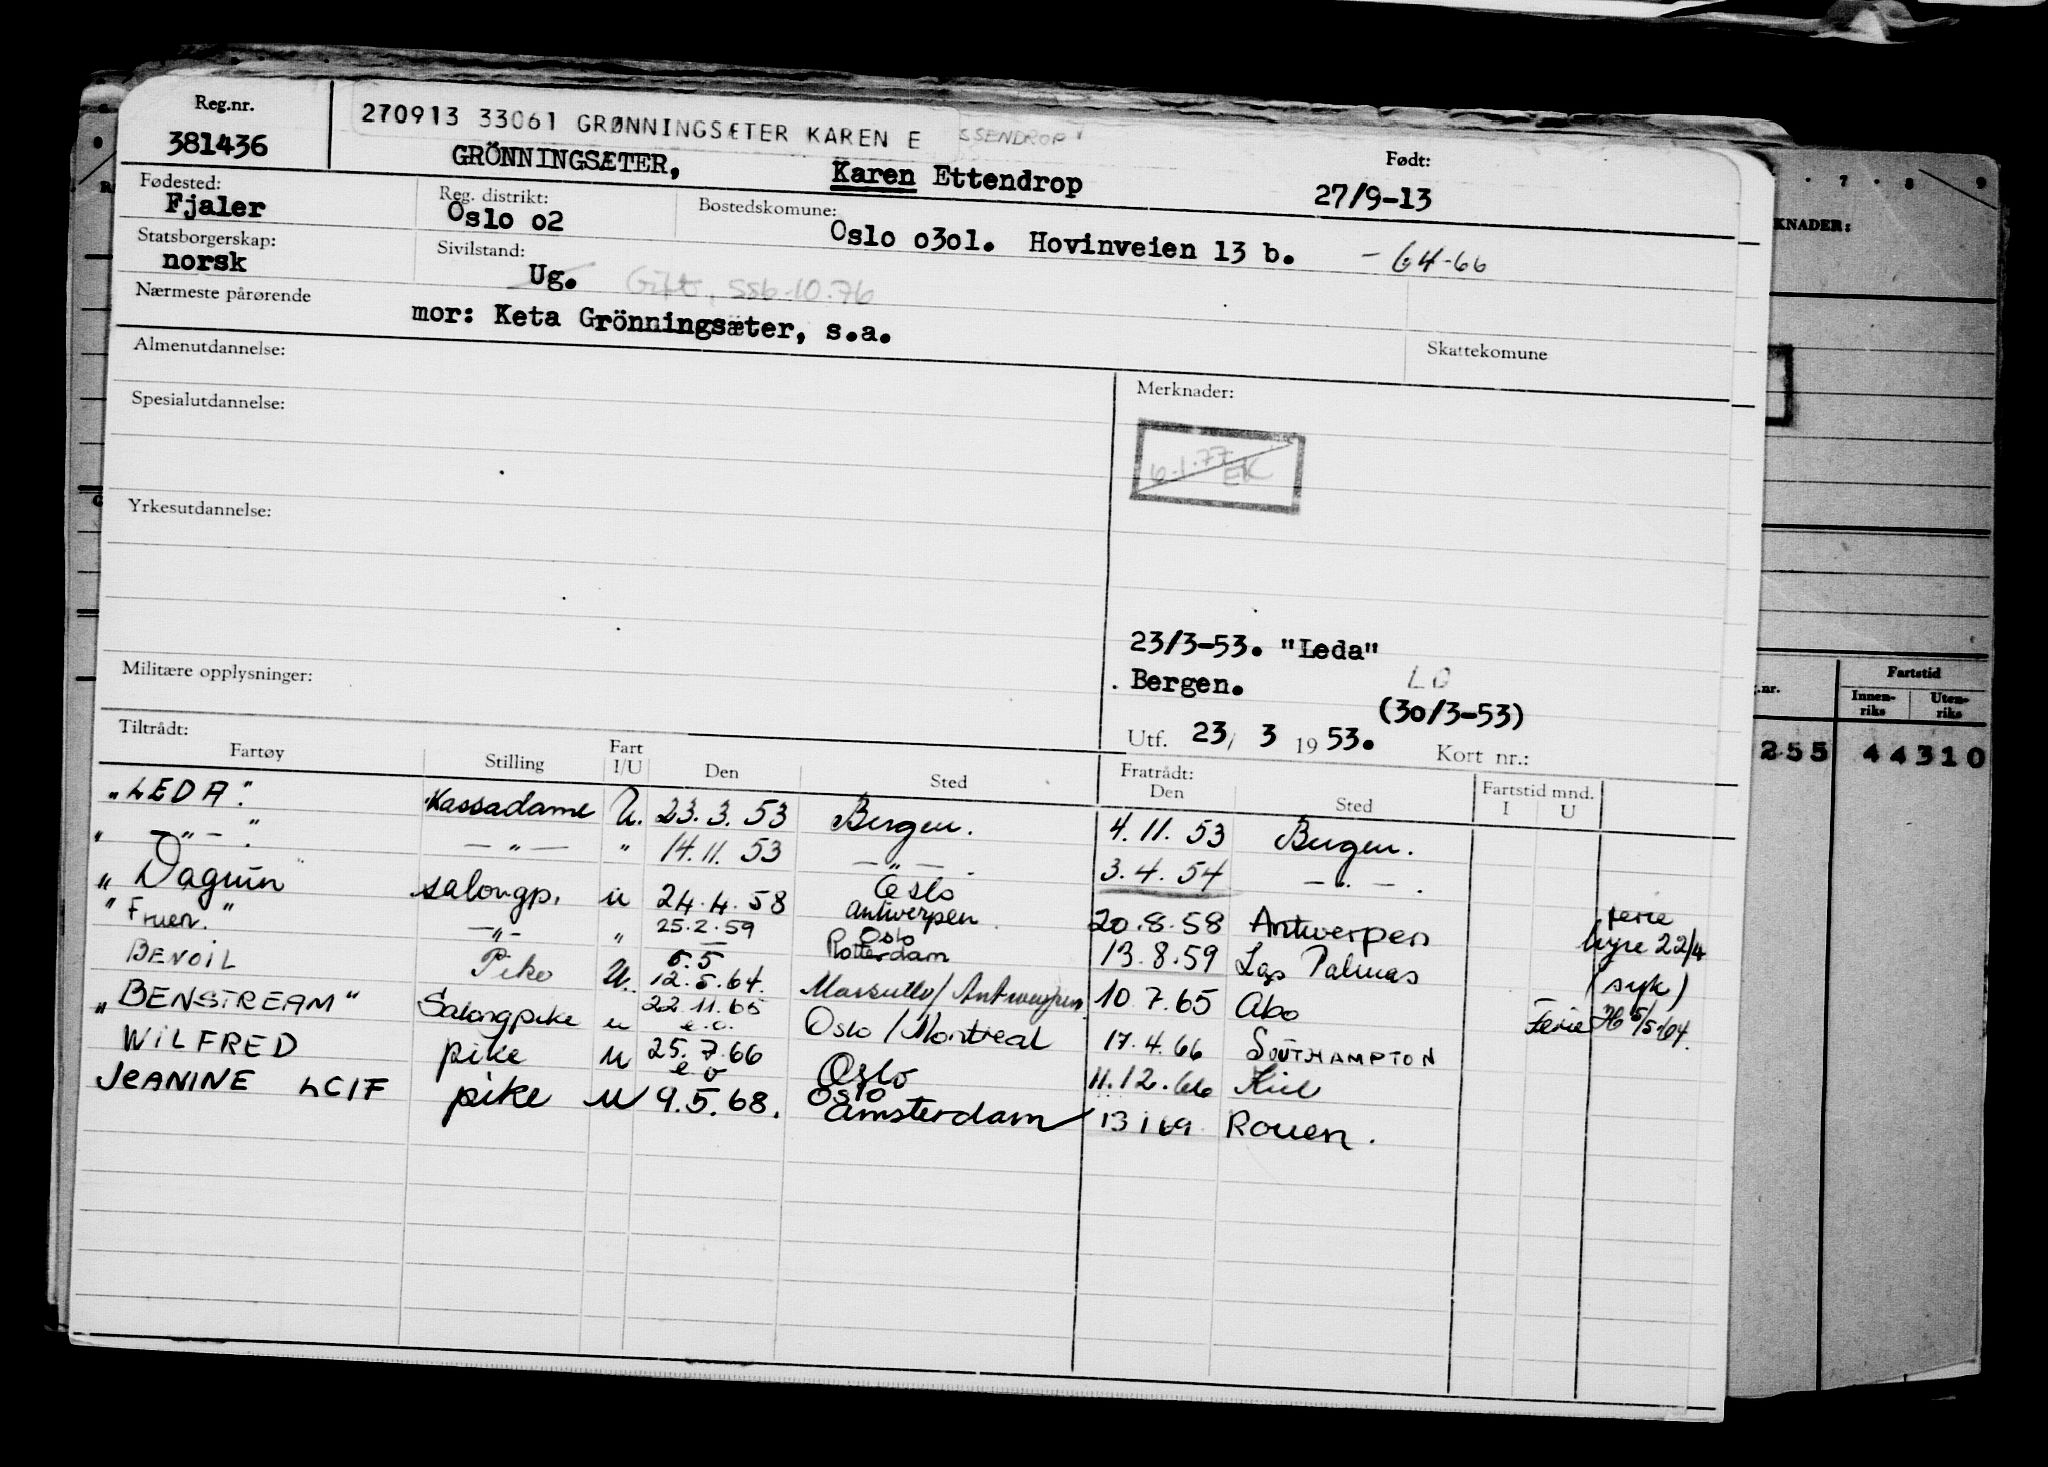 Reg.nr.
381436
270913 33061 GRØNNINGSÆTER KAREN E
SSENDROP
GRÖNNINGSÆTER, Karen Ettendrop
Født:
27/9-13
Fødested:
Fjaler
Reg. distrikt:
Oslo o2
Bostedskomune:
Oslo o3o1. Hovinveien 13 b. - 64-66
Statsborgerskap:
norsk
Sivilstand:
Ug. Gift, SSb-10.76
Nærmeste pårørende
mor: Keta Grönningsæter, s.a.
Almenutdannelse:
Skattekomune
Spesialutdannelse:
Merknader:
6-1.77 EK
Yrkesutdannelse:
23/3-53. "Leda"
Bergen.
LO
(30/3-53)
Militære opplysninger:
Utf. 23/ 3 1953.
Kort nr.:
Tiltrådt:
Fartøy Stilling Fart I/U Den Sted Fratrådt: Den Sted Fartstid mnd. I U
"LEDA". Kassadame U. 23.3.53 Bergen. 4.11.53 Bergen.
" — " — ". — " — " 14.11.53 — " — . 3.4.54 — " — .
" Dagrun salongp. u 24.4.58 Oslo Antwerpen 20.8.58 Antwerpen ferie
" Fruen." — " — " 25.2.59 Oslo Rotterdam 13.8.59 Las Palmas hyre 22/4 (syk)
BENOIL Pike U. 5.5 12.5.64. / Antwerpen 10.7.65 Abo Ferie 5/5-64.
"BENSTREAM" Salongpike u 22.11.65 e.o. Oslo / Montreal 17.4.66 SOUTHAMPTON
WILFRED pike u 25.7.66 e o Oslo 11.12.66 Kiel
JEANINE LCIF pike u 9.5.68. Oslo Amsterdam 13 1 69 Rouen.
7 8 9
KNADER:
.nr.
Fartstid
Innen-
riks
Uten-
riks
255 44310